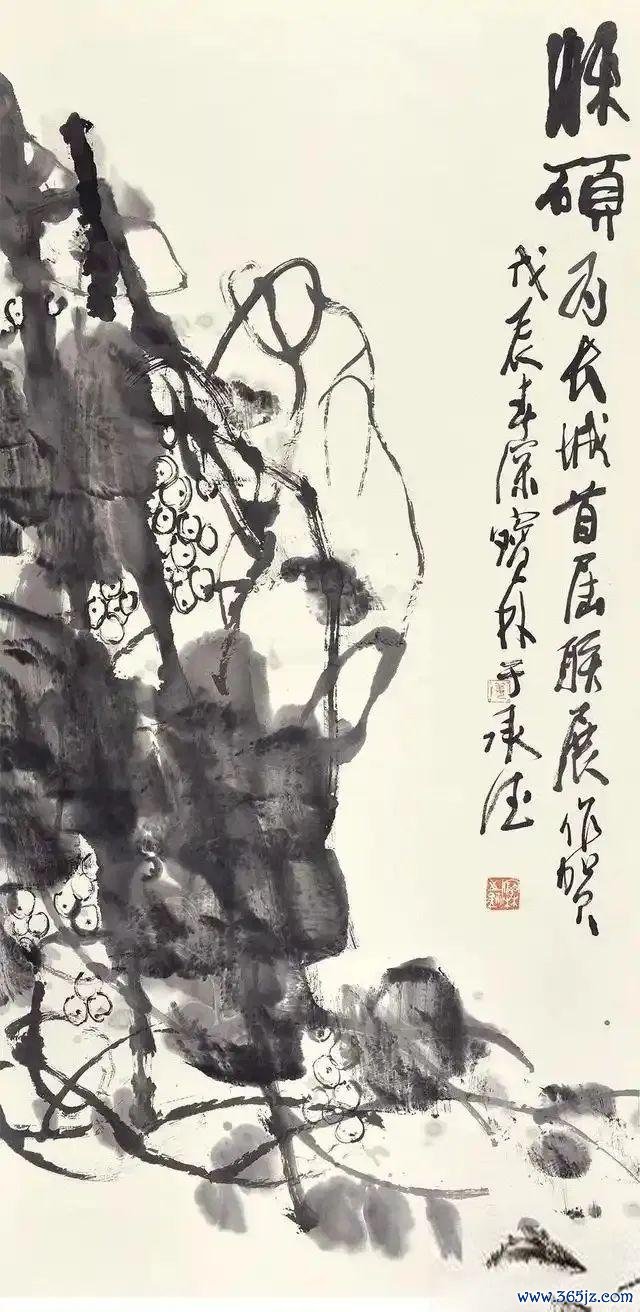 碩为长城首届联展作贺
戊辰春深寶林于承德
www.365jz.com